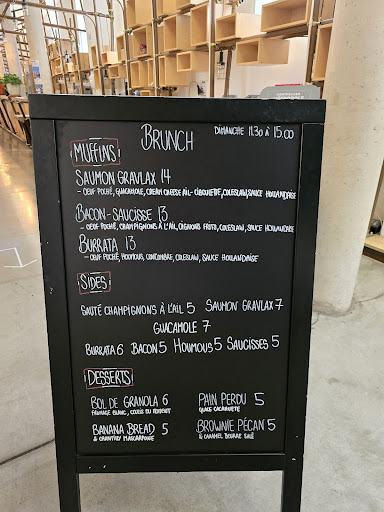 BRUNCH
DIMANCHE 11.30 À 15.00
MUFFINS
SAUMON GRAVLAX 14
- OEUF POCHÉ, GUACAMOLE, CREAM CHEESE AIL-CIBOULETTE, COLESLAW, SAUCE HOLLANDAISE
BACON-SAUCISSE 13
- OEUF POCHÉ, CHAMPIGNONS À L'AIL, OIGNONS FRITS, COLESLAW, SAUCE HOLLANDAISE
BURRATA 13
- OEUF POCHÉ, HOUMOUS, CONCOMBRE, COLESLAW, SAUCE HOLLANDAISE
SIDES
SAUTÉ CHAMPIGNONS À L'AIL 5 SAUMON GRAVLAX 7
GUACAMOLE 7
BURRATA 6 BACON 5 HOUMOUS 5 SAUCISSES 5
DESSERTS
BOL DE GRANOLA 6
FROMAGE BLANC, COULIS DU MOMENT
PAIN PERDU 5
GLACE CACAHUETE
BANANA BREAD 5
& CHANTILLY MASCARPONE
BROWNIE PÉCAN 5
& CARAMEL BEURRE SALÉ